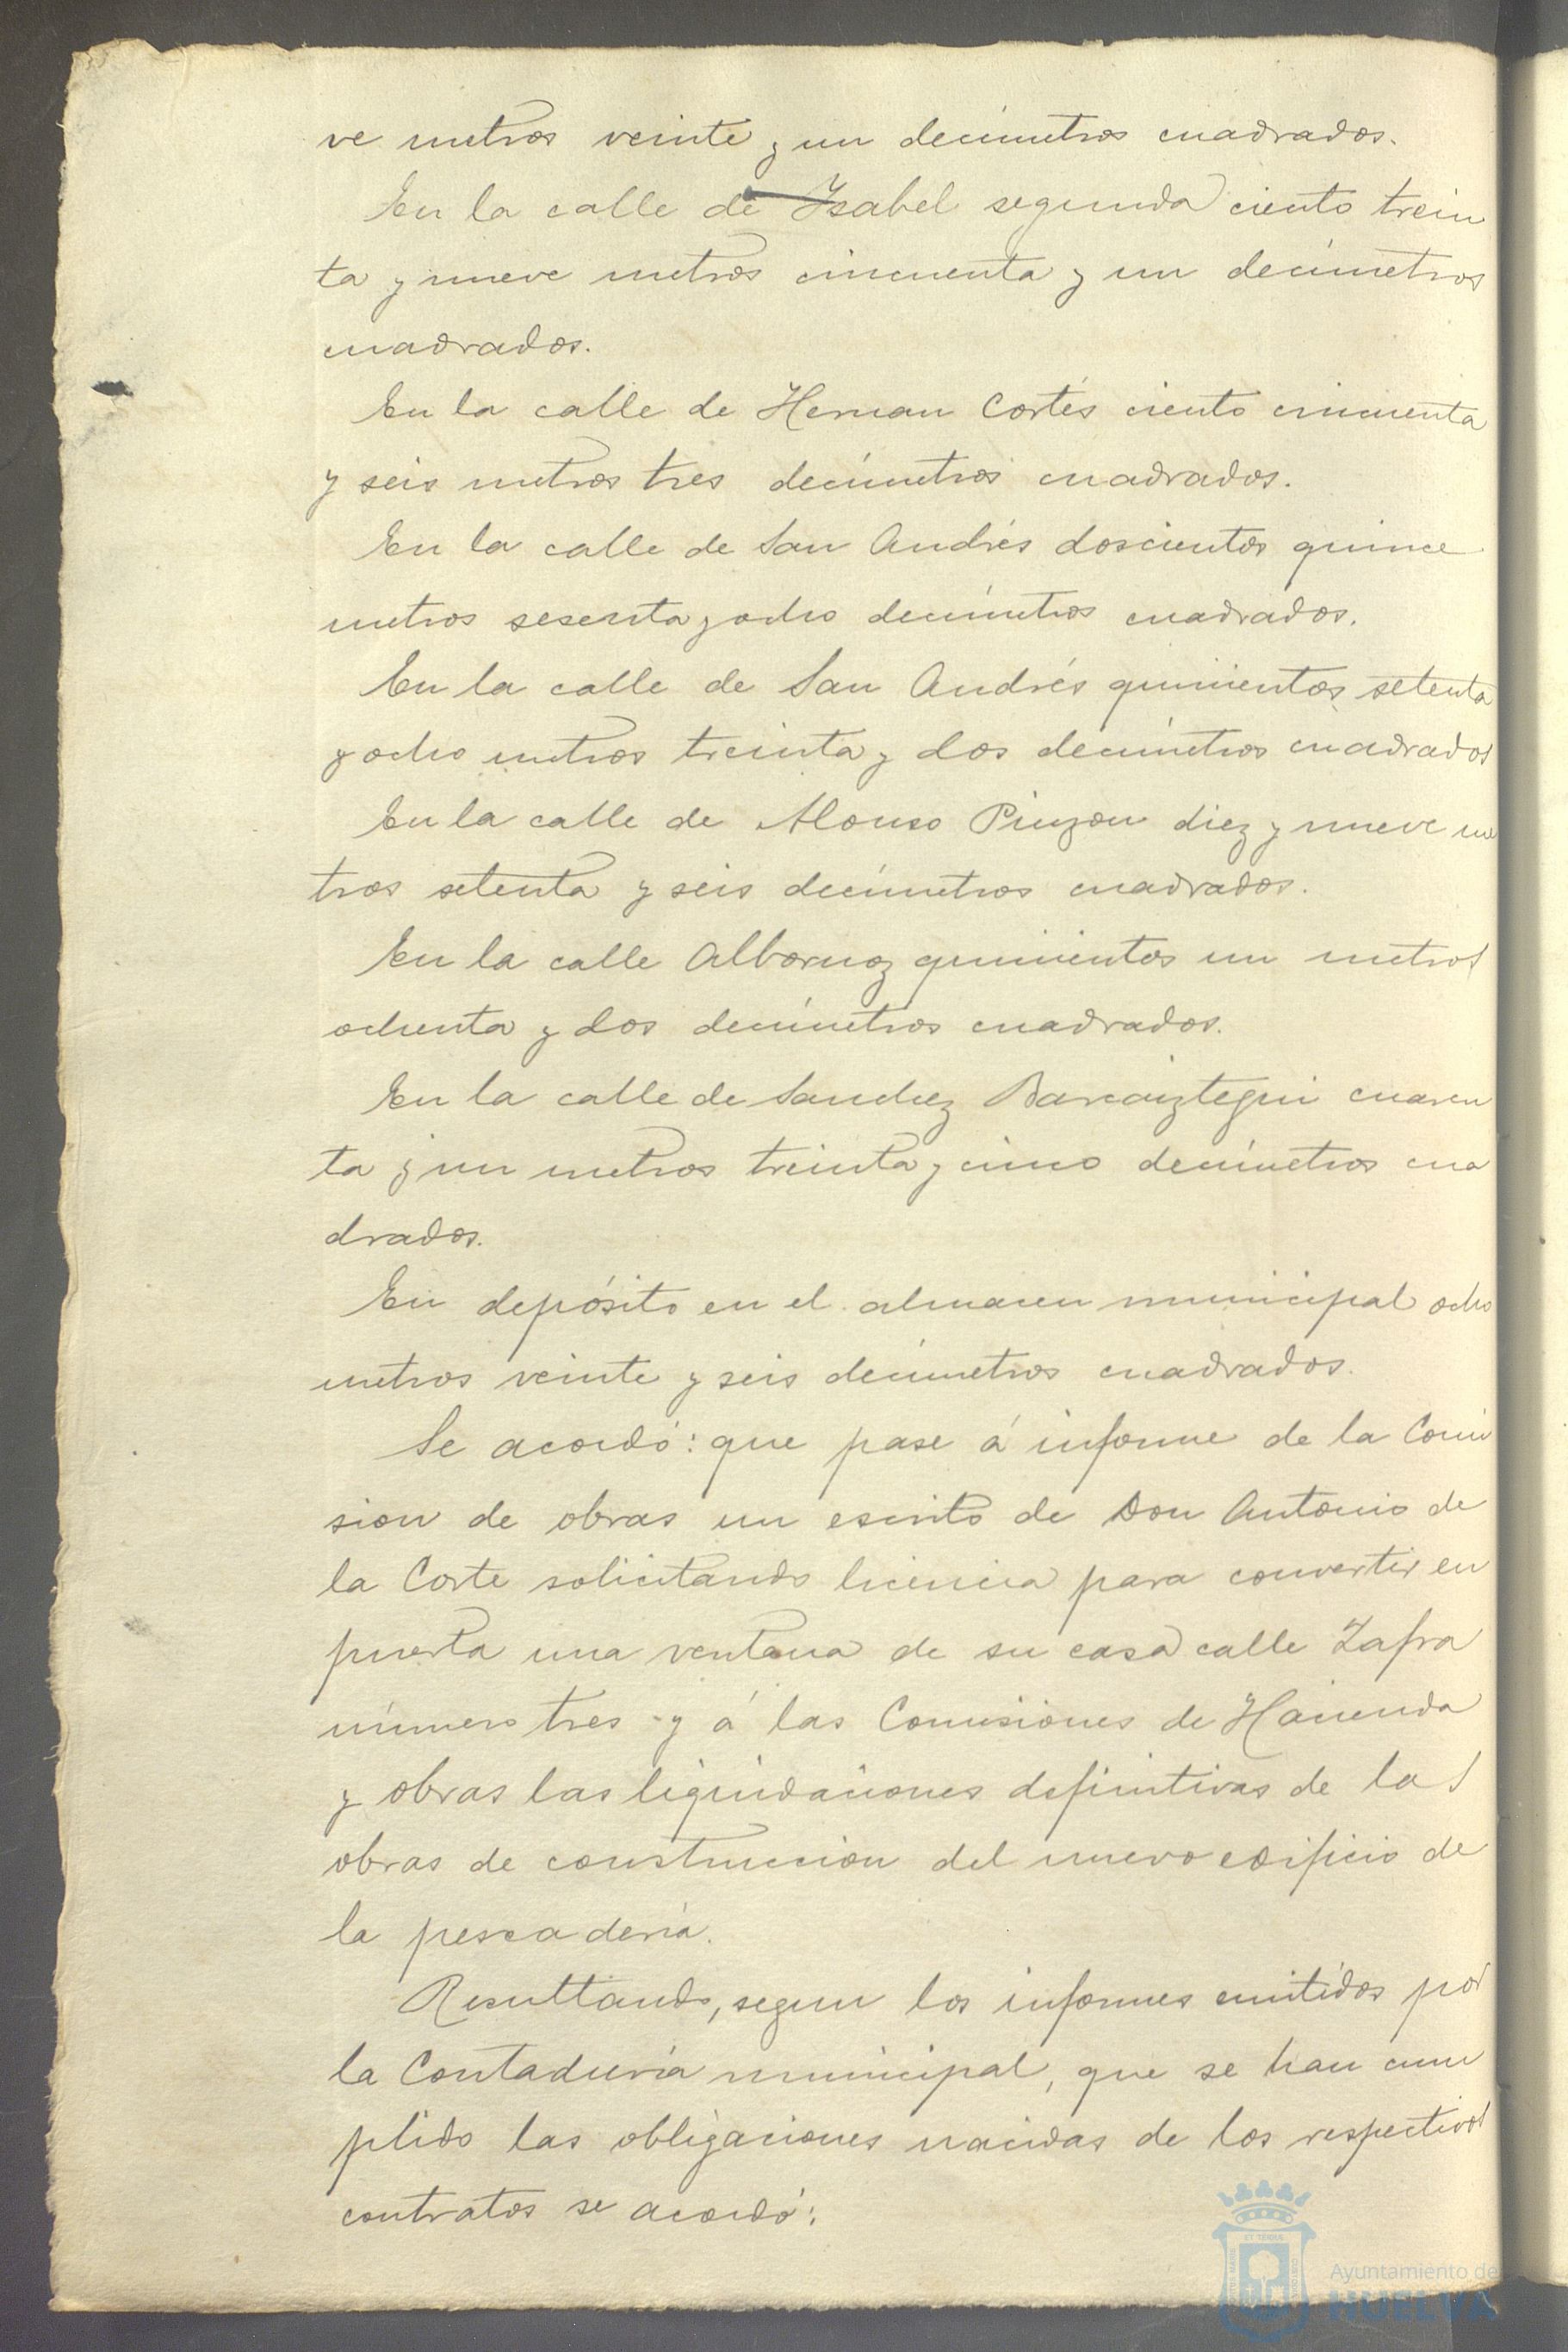 ve metros veinte y un decímetros cuadrados.
En la calle de Isabel segunda ciento trein
ta y nueve metros cincuenta y un decímetros
cuadrados.
En la calle de Hernan Cortés ciento cincuenta
y seis metros tres decímetros cuadrados.
En la calle de San Andrés doscientos quince
metros sesenta y ocho decímetros cuadrados.
En la calle de San Andrés quinientos setenta
y ocho metros treinta y dos decímetros cuadrados
En la calle de Alonso Pinzon diez y nueve me
tros setenta y seis decímetros cuadrados.
En la calle Albornoz quinientos un metros
ochenta y dos decímetros cuadrados.
En la calle de Sanchez Barcaiztegui cuaren
ta y un metros treinta y cinco decímetros cua
drados.
En depósito en el almacen municipal ocho
metros veinte y seis decímetros cuadrados.
Se acordó: que pase á informe de la Comi
sion de obras un escrito de Don Antonio de
la Corte solicitando licencia para convertir en
puerta una ventana de su casa calle Zafra
número tres y á las Comisiones de Hacienda
y obras las liquidaciones definitivas de las
obras de construccion del nuevo edificio de
la pescadería.
Resultando, segun los informes emitidos por
la Contaduría municipal, que se han cum
plido las obligaciones nacidas de los respectivos
contratos se acordó:
Ayuntamiento de
HUELVA